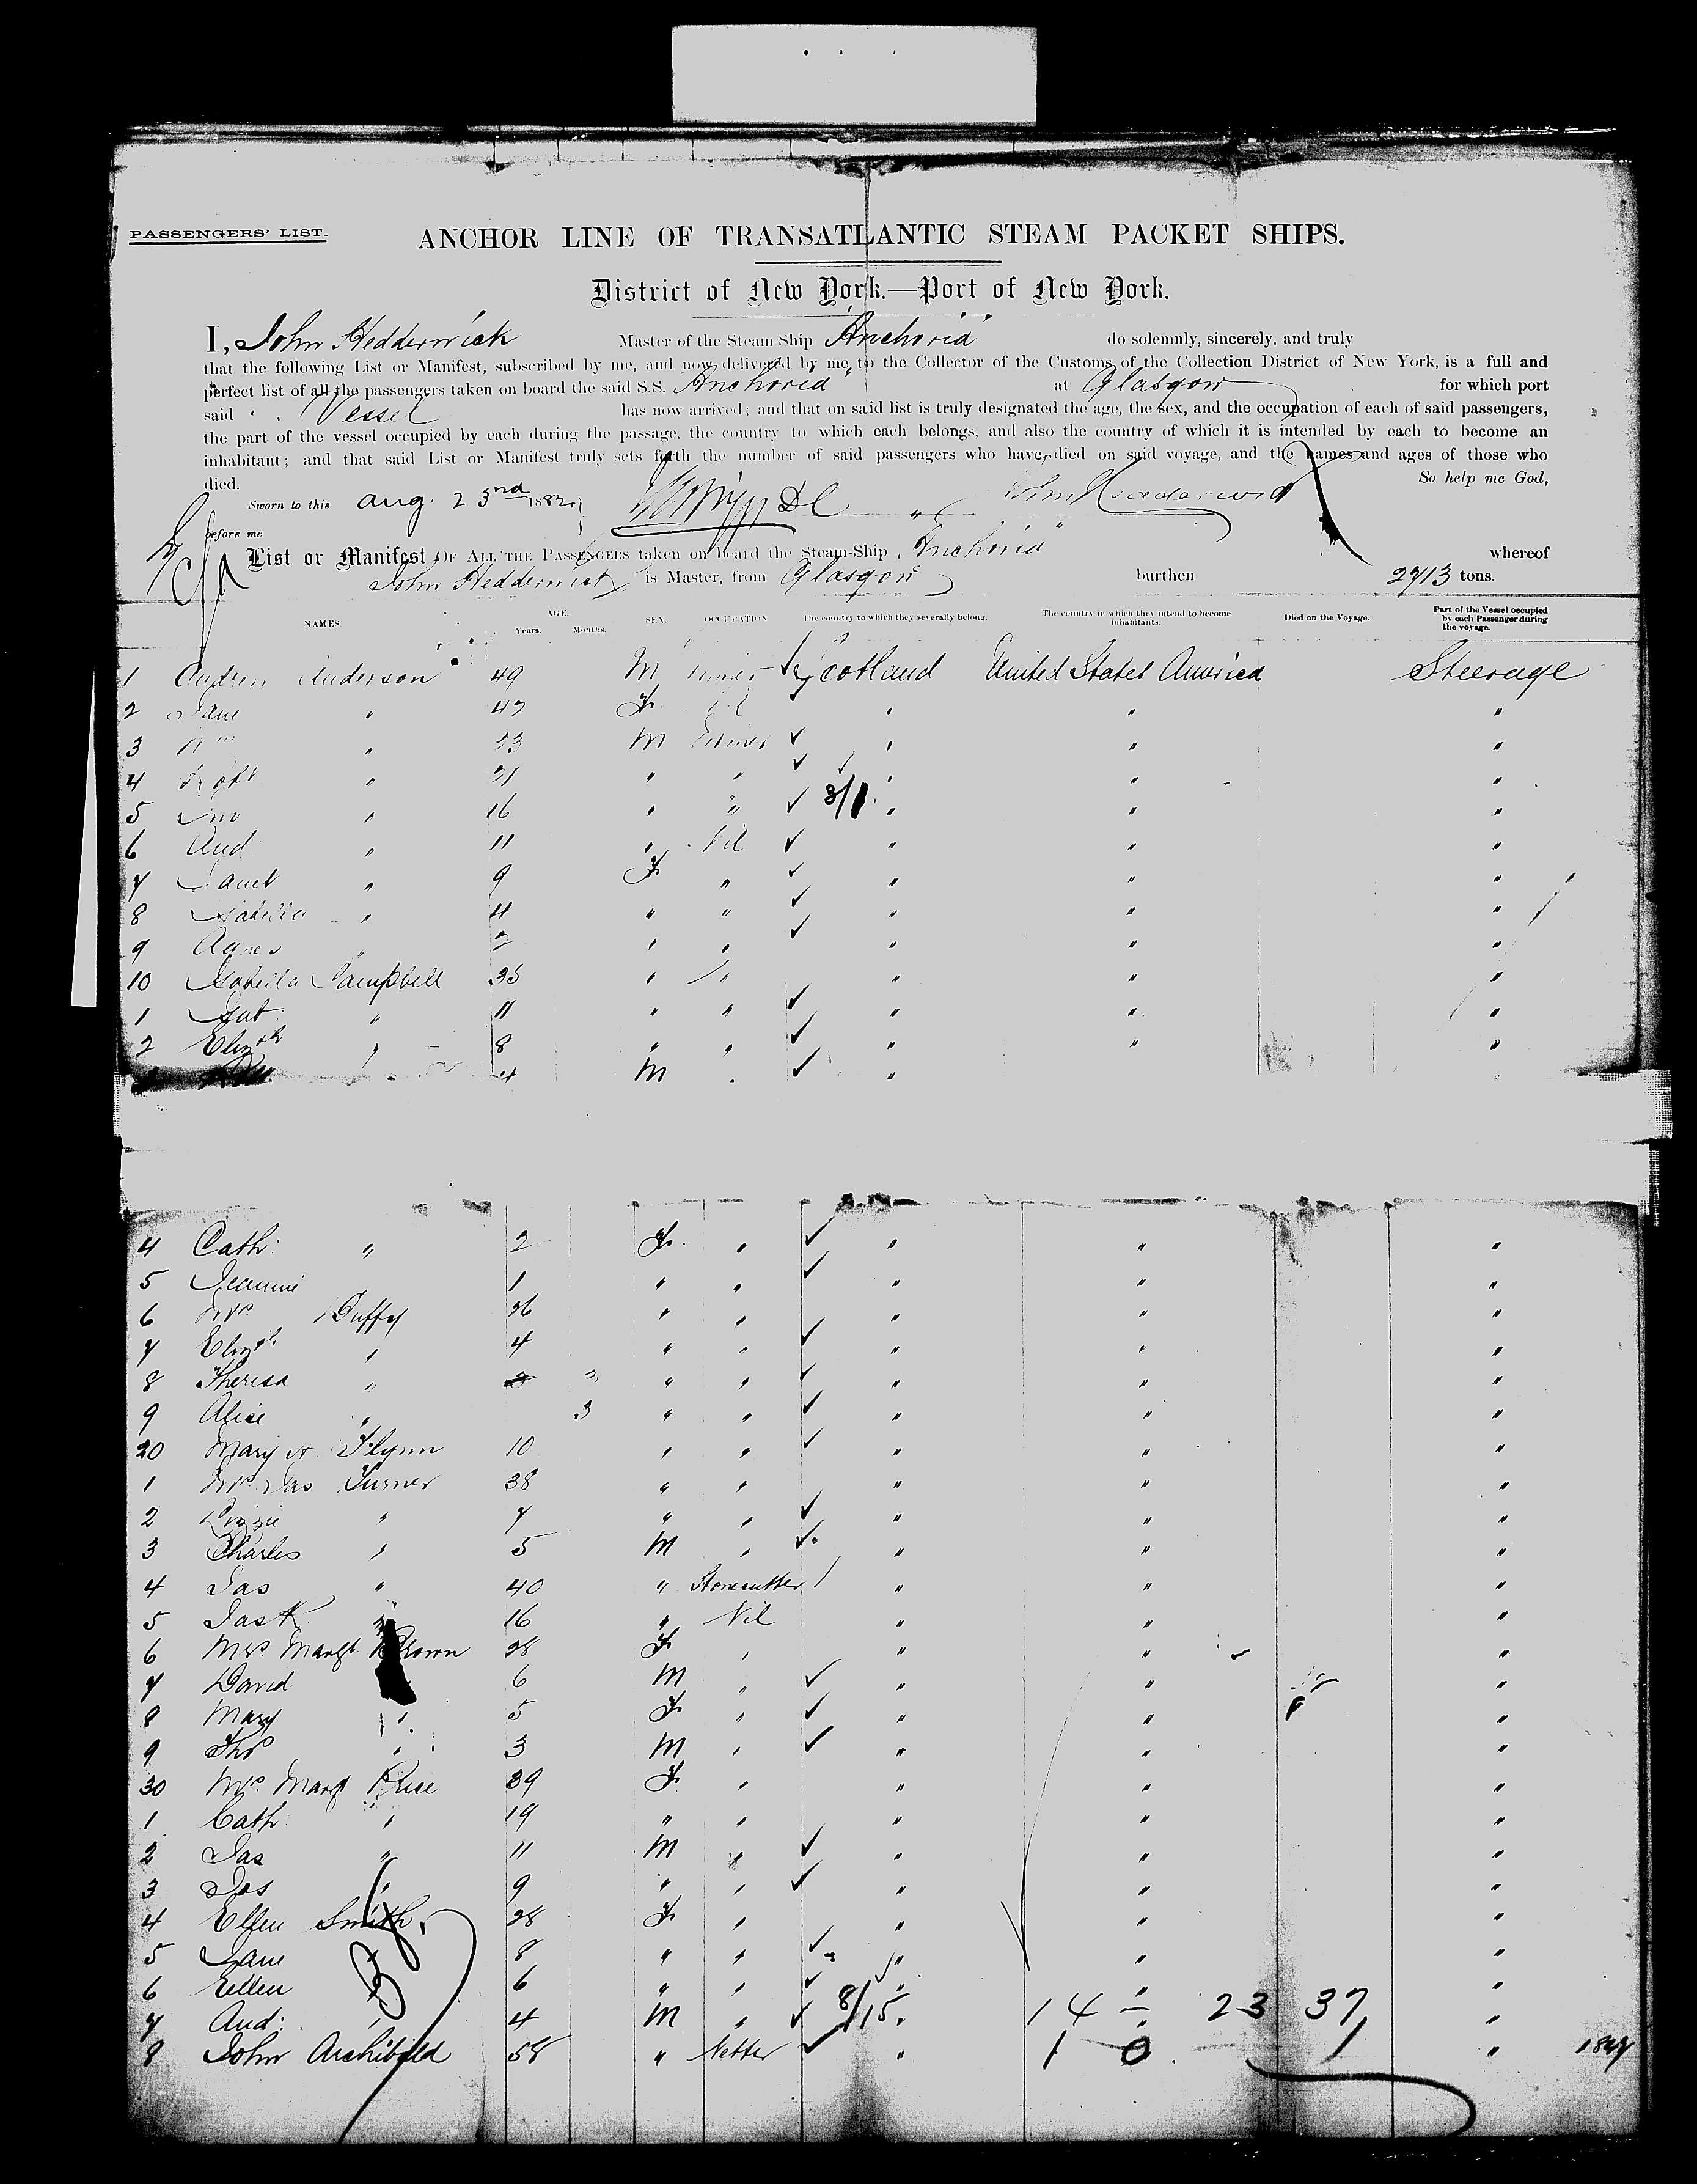 PASSENGERS' LIST.
ANCHOR LINE OF TRANSATLANTIC STEAM PACKET SHIPS.
District of New York.—Port of New York.
I, John Hedderwick Master of the Steam-Ship "Anchoria" do solemnly, sincerely, and truly
that the following List or Manifest, subscribed by me, and now delivered by me to the Collector of the Customs of the Collection District of New York, is a full and
perfect list of all the passengers taken on board the said S.S. "Anchoria" at Glasgow for which port
said Vessel has now arrived; and that on said list is truly designated the age, the sex, and the occupation of each of said passengers,
the part of the vessel occupied by each during the passage, the country to which each belongs, and also the country of which it is intended by each to become an
inhabitant; and that said List or Manifest truly sets forth the number of said passengers who have died on said voyage, and the names and ages of those who
died. So help me God,
Sworn to this Aug. 23rd 1882
before me
List or Manifest OF ALL THE PASSENGERS taken on board the Steam-Ship "Anchoria" whereof
John Hedderwick is Master, from Glasgow burthen 2713 tons.
NAMES AGE. Years. Months. SEX. OCCUPATION The country to which they severally belong. The country in which they intend to become inhabitants. Died on the Voyage. Part of the Vessel occupied by each Passenger during the voyage.
1 Andrew Anderson 49 M Miner Scotland United States America Steerage
2 Jane " 42 F " " "
3 Wm " 23 M Miner " " "
4 Robt " 21 " " " " "
5 Jno " 16 " " 8/1 " " "
6 And " 11 " Nil " " "
7 Janet " 9 F " " " "
8 Isabella " 4 " " " " "
9 Agnes " 2 " " " " "
10 Isabella Campbell 35 " " " " "
1 " 11 " " " " "
2 Elizth " 8 " " " " "
4 M " "
4 Cath: " 2 F " " " "
5 Jeannie 1 " " " " "
6 Mrs Duffy 26 " " " " "
7 Elizth " 4 " " " " "
8 Theresa " " " " " " "
9 Alice " 3 " " " " "
20 Mary A Flynn 10 " " " " "
1 Mrs Jas Turner 38 " " " " "
2 Lizzie " 7 " " " " "
3 Charles " 5 M " " " "
4 Jas " 40 " Stonecutter " " "
5 Jas K " 16 " Nil " " "
6 Mrs Margt Brown 28 F " " " "
7 David 6 M " " " "
8 Mary " 5 F " " " "
9 Thos " 3 M " " " "
30 Mrs Margt Rice 39 F " " " "
1 Cath: " 19 " " " " "
2 Jas " 11 M " " " "
3 Jos " 9 " " " " "
4 Ellen Smith 28 F " " " "
5 Jane " 8 " " " " "
6 Ellen " 6 " " " " "
7 And: " 4 M " 8/15 " 14 — 23 37 "
8 John Archibald 58 " " 1 0 1 " 1827